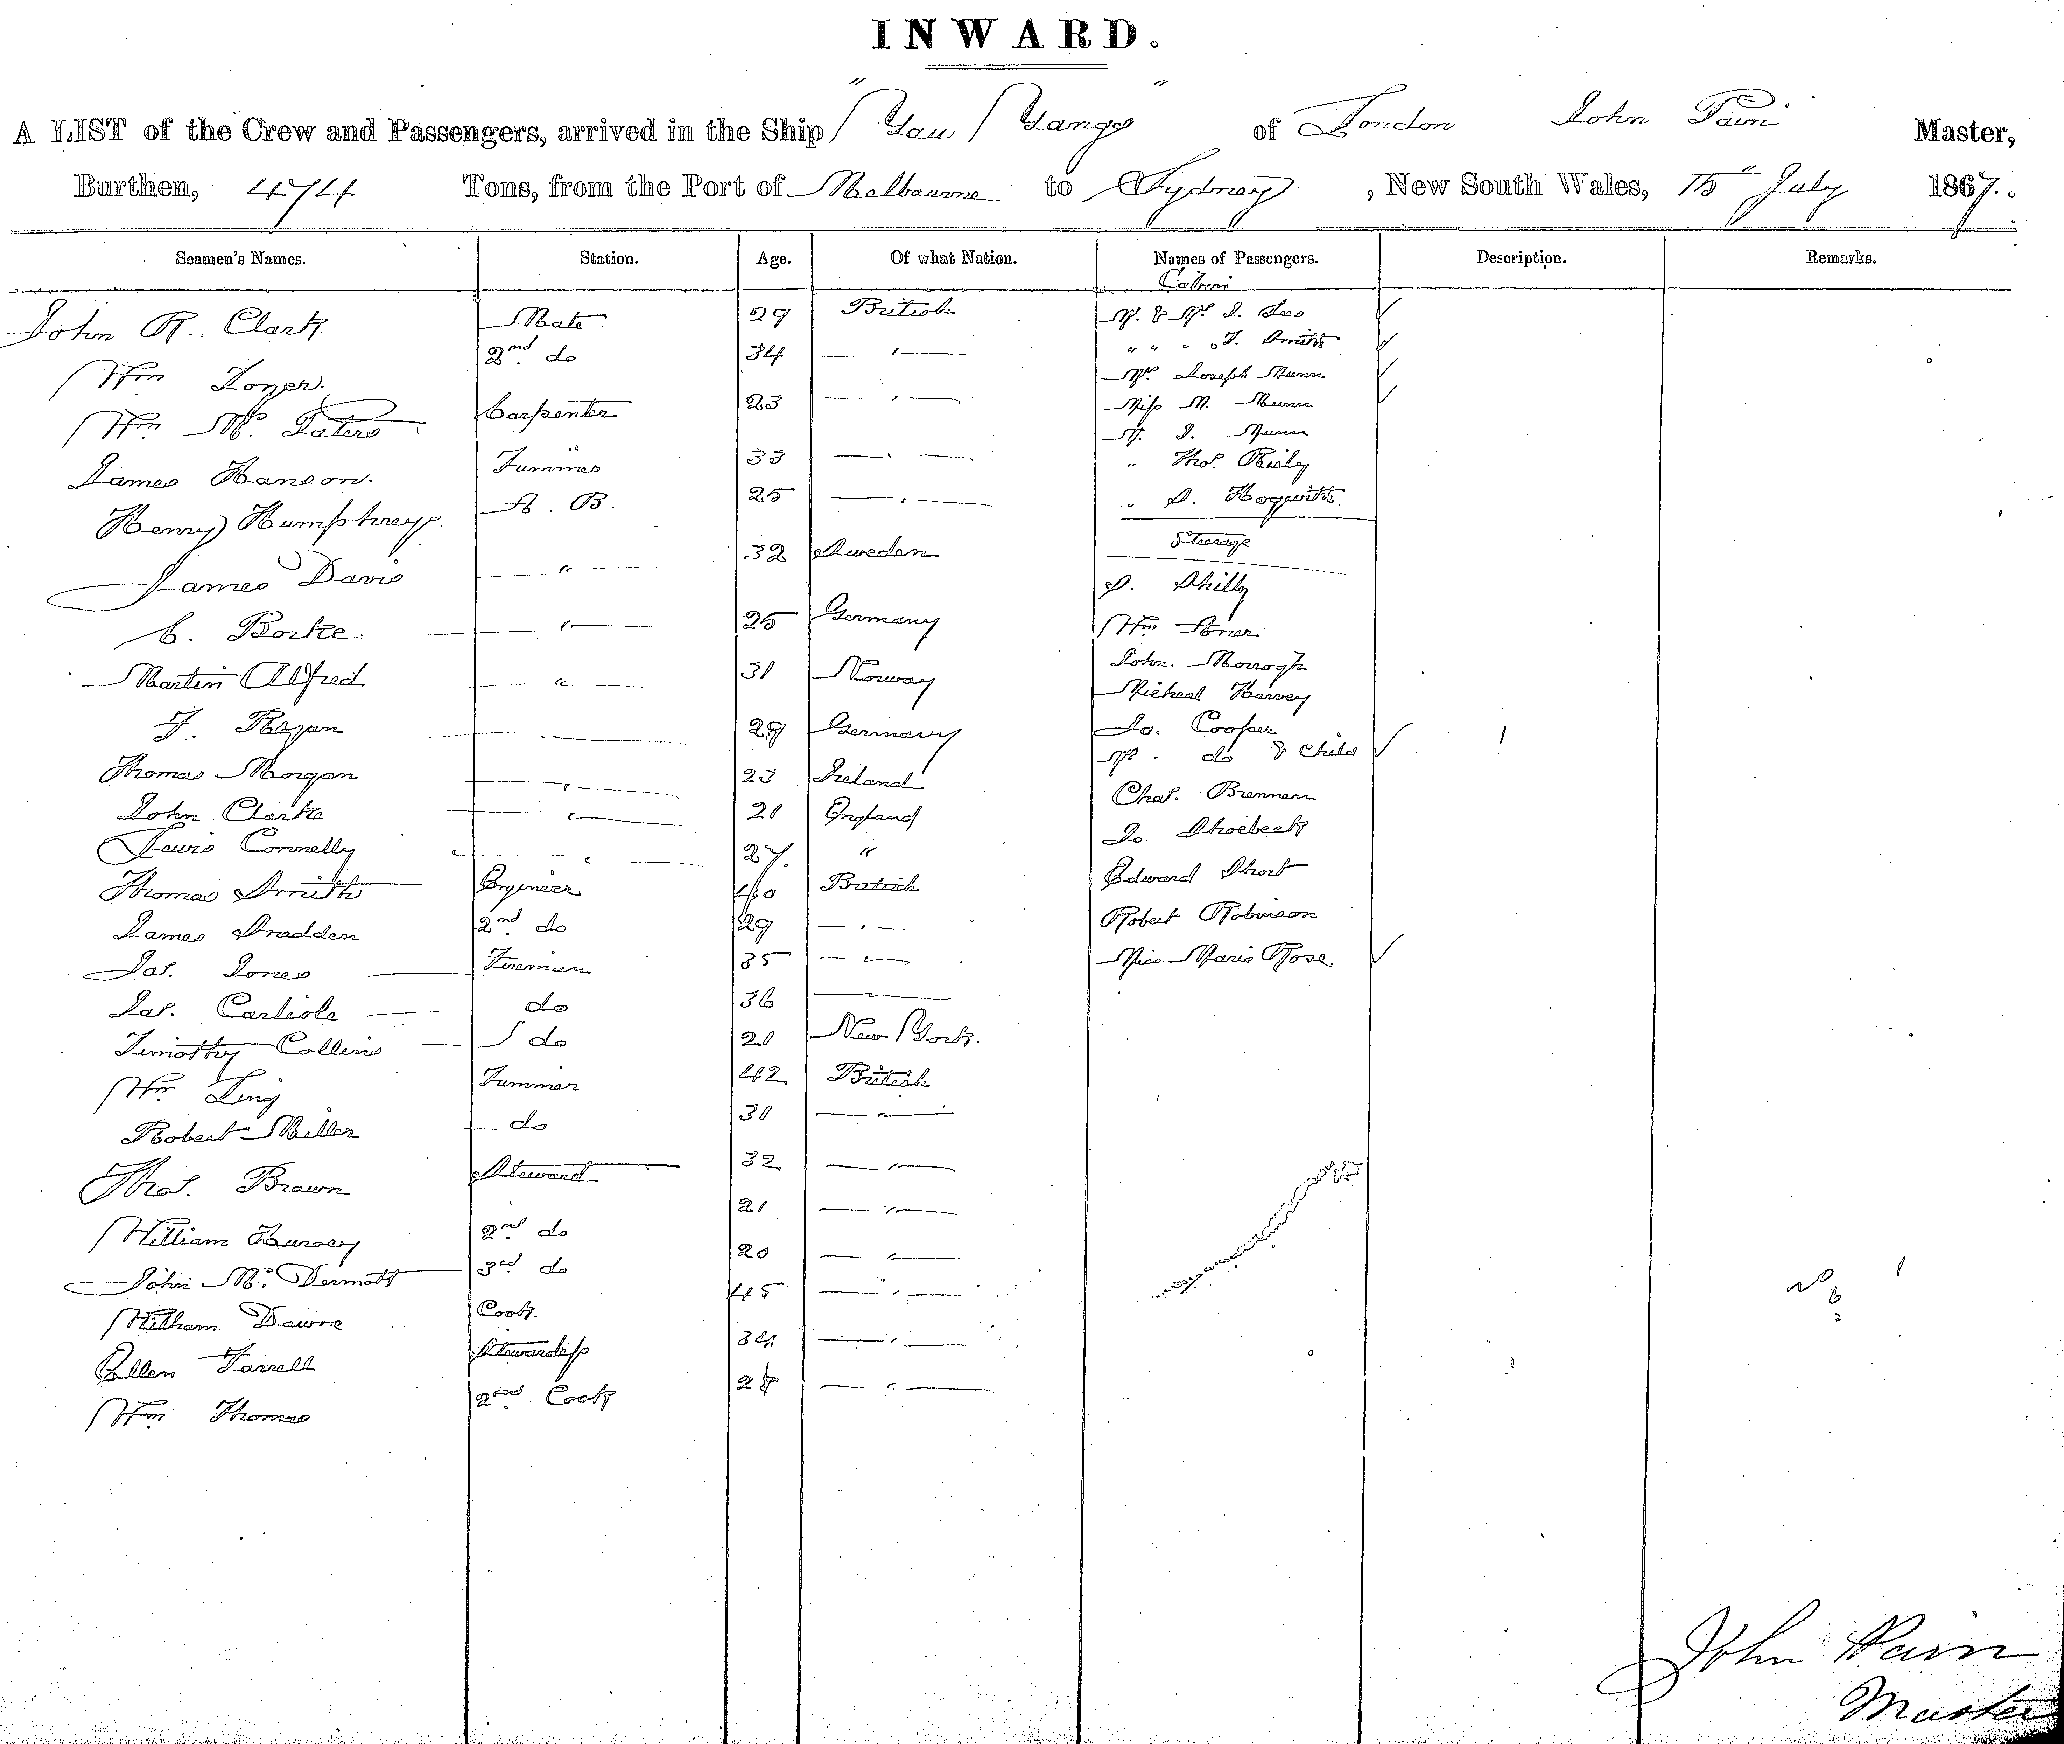 INWARD.
A LIST of the Crew and Passengers, arrived in the Ship "You Yangs" of London John Pain Master,
Burthen, 474 Tons, from the Port of Melbourne to Sydney, New South Wales, 15th July 1867.
Seamen's Names. Station. Age. Of what Nation. Names of Passengers. Description. Remarks.
Cabin
John R. Clark Mate 29 British Mr. & Mrs J.
Wm 2nd do 34 " " " " J. Smith
Wm Mc Carpenter 23 " Mr. Joseph Munn
Miss M. Munn
Mr. J. Munn
James Hanson. 33 " " Thos.
Henry Humphreys. A. B. 25 " "
Steerage
James Davis " 32 Sweden
C. " 25 Germany Wm
Martin Alfred " 31 Norway John
Micheal Harvey
J. 29 Germany Jas. Cooper
Mrs. do & Child
Thomas Morgan " 23 Ireland Chas. Brennan
John Clarke " 21 England
Lewis Connelly " 27. " Edward Short
Thomas Smith Engineer 40 British Robert Robinson
James 2nd do 29 " Miss Maria Rose
Jas. Jones Fireman 35 "
Jas. Carlisle do 36
Timothy Collins do 21 New York.
Wm Trimmer 42 British
Robert Miller do 31 "
Thos. Brown Steward 32 "
William 2nd do 21 "
John Mc Dermott 3rd do 20 "
William Cook 45 "
Ellen Farrell Stewardess 34 "
Wm Thomas 2nd Cook "
John Pain
Master